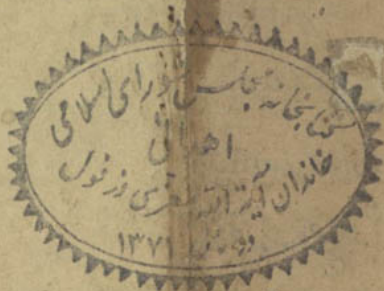 کتابخانه مجلس شورای اسلامی
اهدائی
خاندان آیة الله معزی دزفول
۱۳۷۱